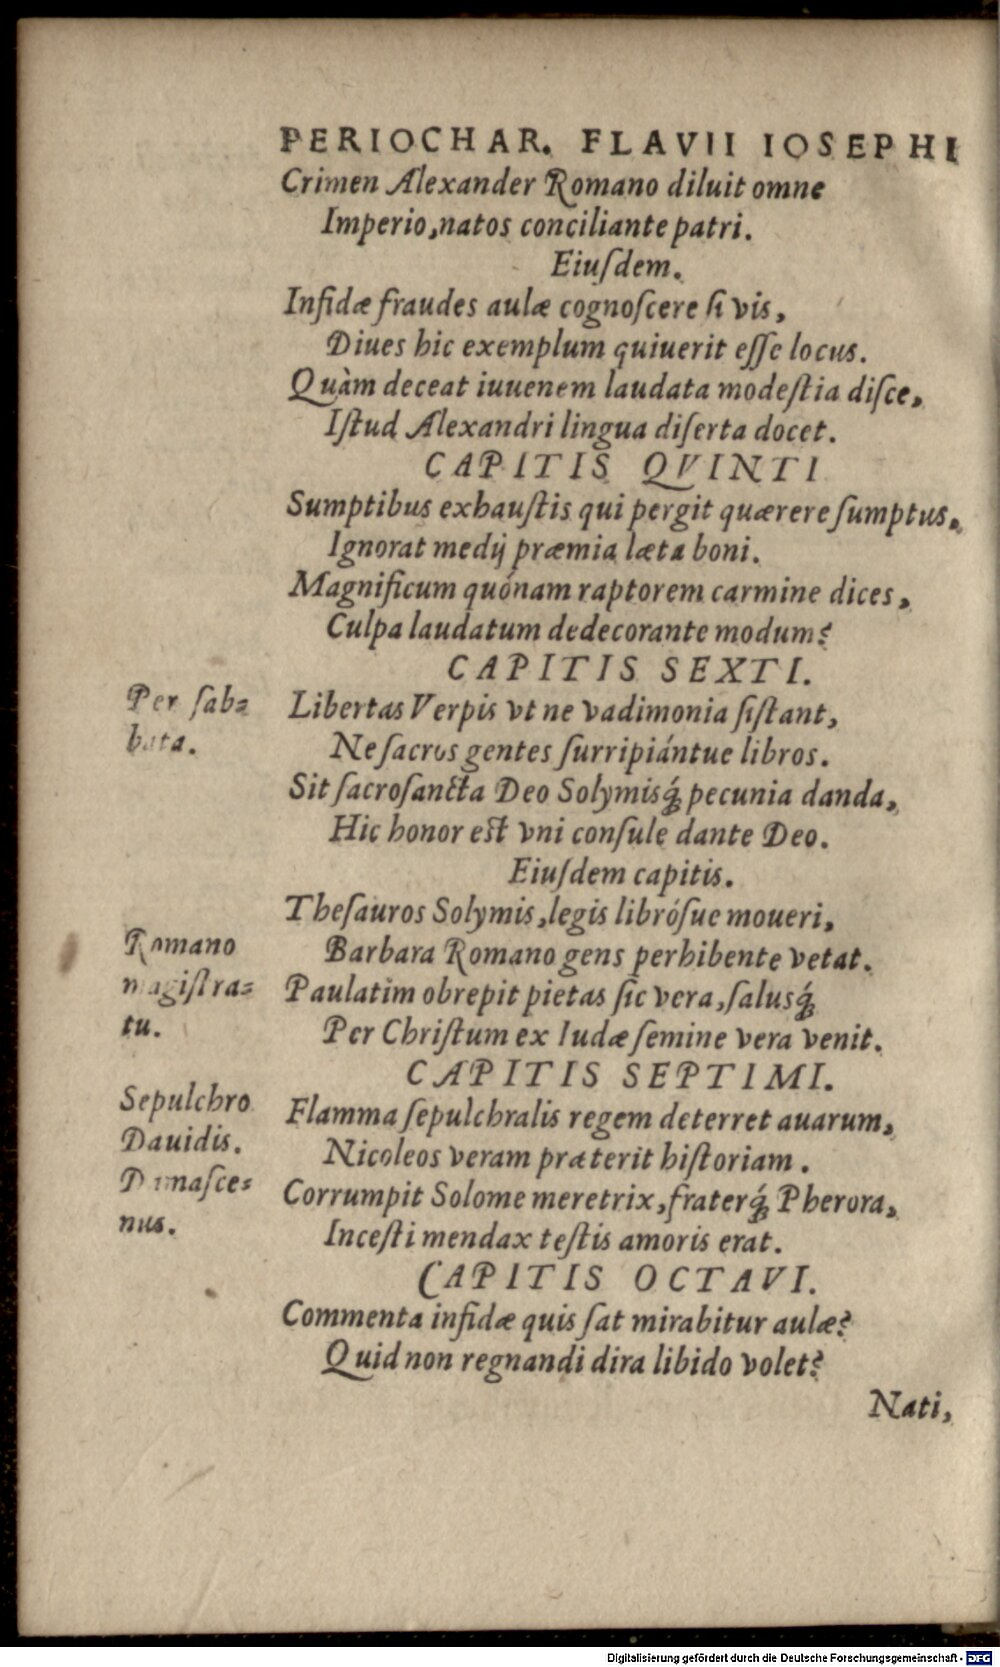 PERIOCHAR. FLAVII IOSEPHI
Crimen Alexander Romano diluit omne
Imperio, natos conciliante patri.
Eiuſdem.
Infidæ fraudes aulæ cognoſcere ſi vis,
Diues hic exemplum quiuerit eſſe locus.
Quàm deceat iuuenem laudata modeſtia diſce,
Iſtud Alexandri lingua diſerta docet.
CAPITIS QVINTI
Sumptibus exhauſtis qui pergit quærere ſumptus,
Ignorat medij præmia læta boni.
Magnificum quónam raptorem carmine dices,
Culpa laudatum dedecorante modum?
CAPITIS SEXTI.
Per ſab=
bata.
Libertas Verpis vt ne vadimonia ſiſtant,
Ne ſacros gentes ſurripiántue libros.
Sit ſacroſancta Deo Solymisq́; pecunia danda,
Hic honor est vni conſule dante Deo.
Eiuſdem capitis.
Theſauros Solymis, legis libróſue moueri,
Romano
magiſtra=
tu.
Barbara Romano gens perhibente vetat.
Paulatim obrepit pietas ſic vera, ſalusq́;
Per Chriſtum ex Iudæ ſemine vera venit.
CAPITIS SEPTIMI.
Sepulchro
Dauidis.
Damaſce=
nus.
Flamma ſepulchralis regem deterret auarum,
Nicoleos veram præterit hiſtoriam.
Corrumpit Solome meretrix, fraterq́; Pherora,
Inceſti mendax teſtis amoris erat.
CAPITIS OCTAVI.
Commenta infidæ quis ſat mirabitur aulæ?
Quid non regnandi dira libido volet?
Nati,
Digitalisierung gefördert durch die Deutsche Forschungsgemeinschaft - DFG